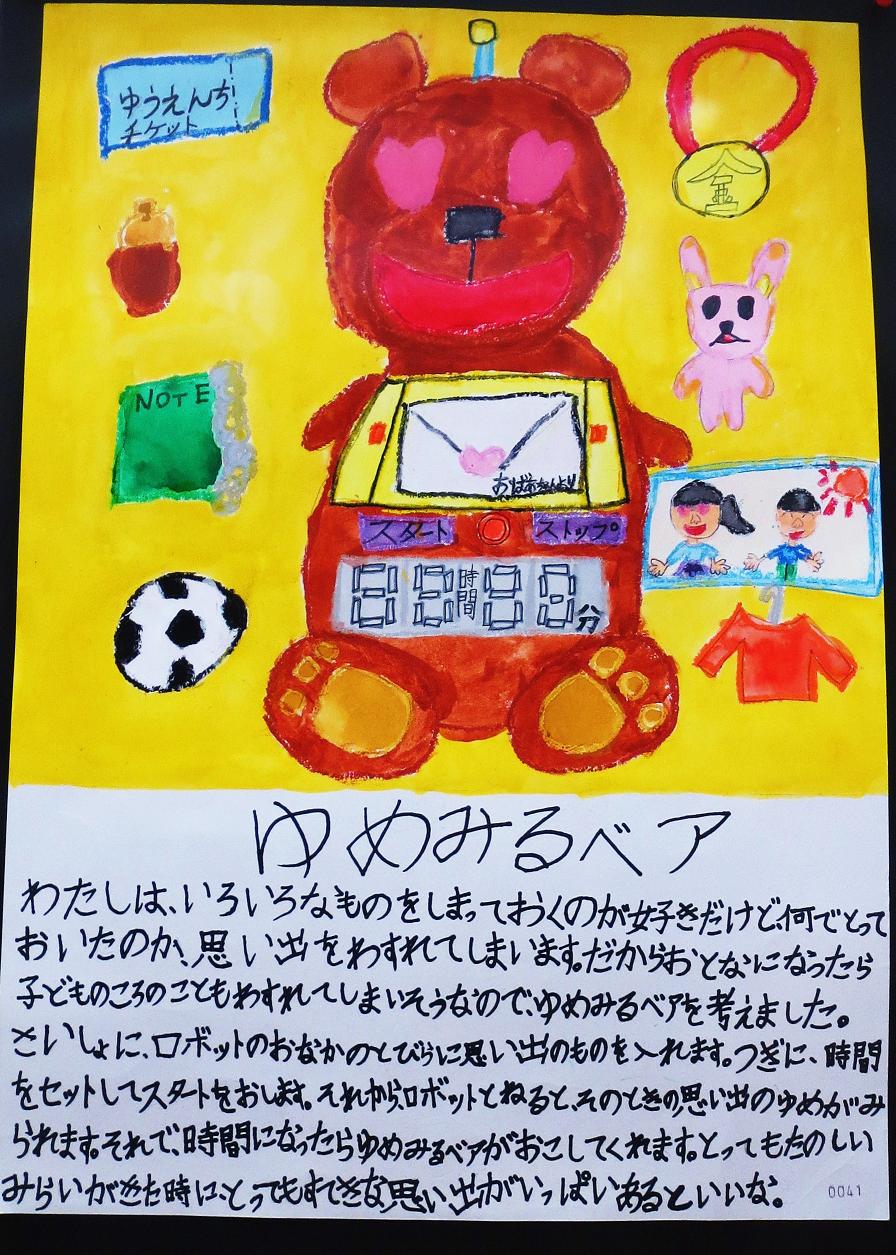 ゆうえんち
チケット
金
NOTE
おばあちゃんより
スタート
ストップ
88時間88分
ゆめみるベア
わたしは、いろいろなものをしまっておくのが好きだけど、何でとって
おいたのか、思い出をわすれてしまいます。だからおとなになったら
子どものころのこともわすれてしまいそうなので、ゆめみるベアを考えました。
さいしょに、ロボットのおなかのとびらに思い出のものを入れます。つぎに、時間
をセットしてスタートをおします。それからロボットとねると、そのときの思い出のゆめがみ
られます。それで、時間になったらゆめみるベアがおこしてくれます。とってもたのしい
みらいがきた時に、とってもすてきな思い出がいっぱいあるといいな。
0041